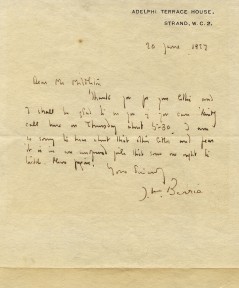 ADELPHI TERRACE HOUSE,
STRAND, W.C.2.
20 June 1927
Dear Mr
Thank you for your letter and
I shall be glad to see you if you can
call here on Thursday about 5-30. I am
so sorry to hear about that other letter and fear
it is an that one might to
Please forgive!
Yours Sincerely
J. M. Barrie